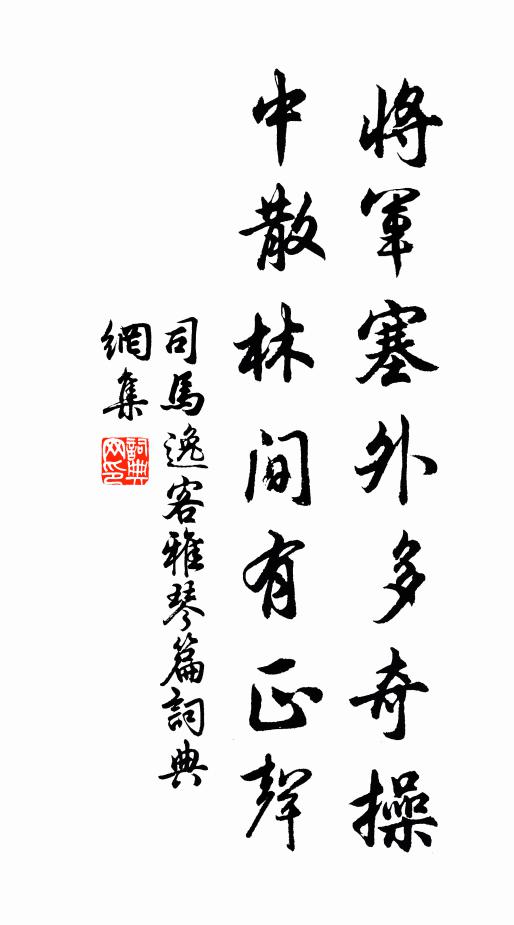 將軍塞外多奇操
中散林間有正聲
司馬逸客雅琴篇詞典
網集
詞典
网印